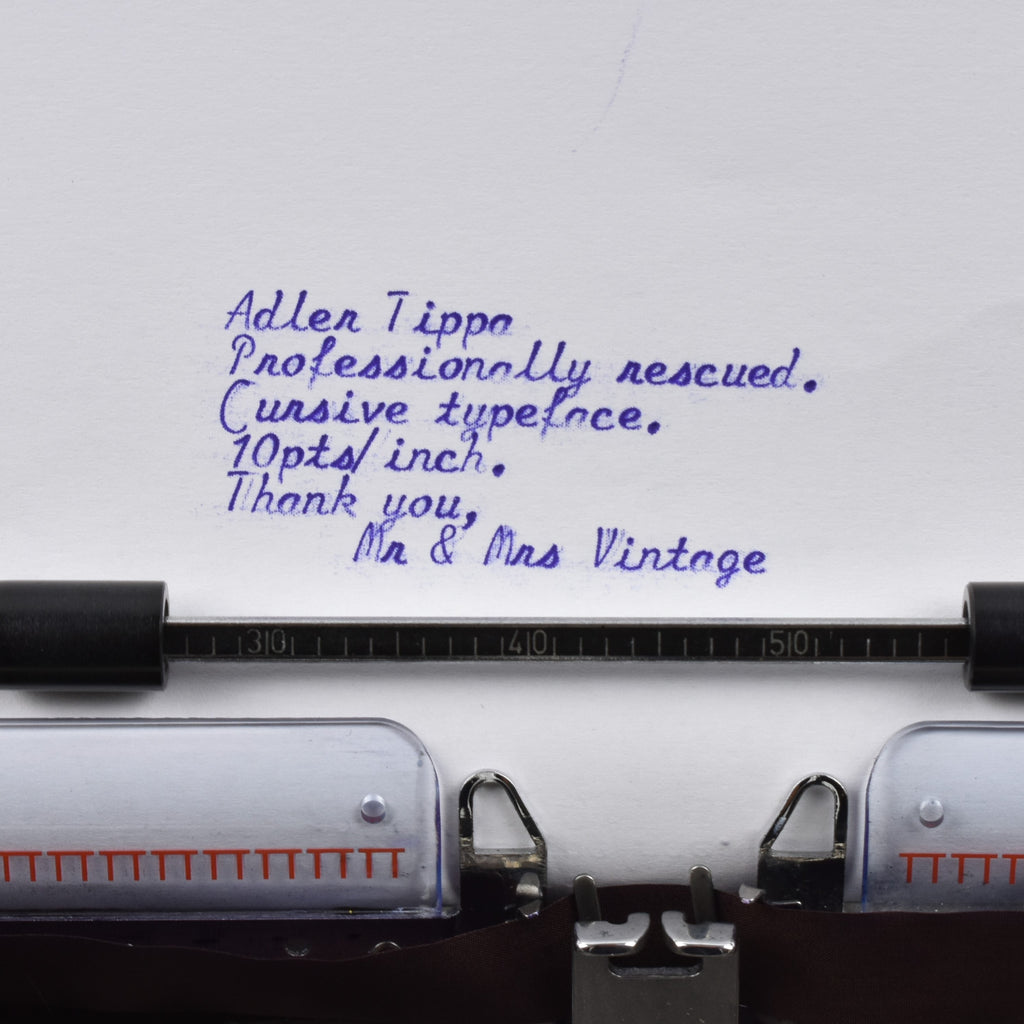 Adler Tippa
Professionally rescued.
Cursive typeface.
10pts/inch.
Thank you,
Mr & Mrs Vintage
30 40 50